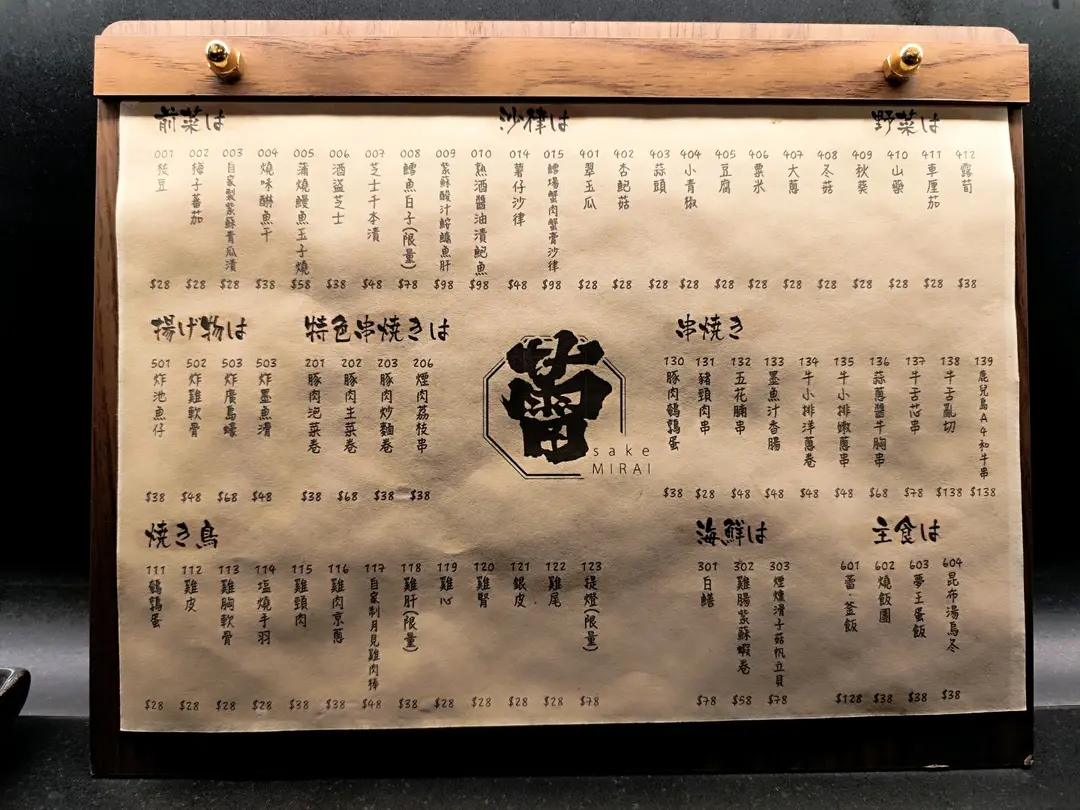 前菜は
001 枝豆 $28
002 梅子蕃茄 $28
003 自家製紫蘇青瓜漬 $28
004 燒味醂魚干 $38
005 蒲燒鰻魚玉子燒 $58
006 酒盜芝士 $38
007 芝士千本漬 $48
008 鱈魚白子(限量) $78
009 紫蘇酸汁鮟鱇魚肝 $98
010 熟酒醬油漬鮑魚 $98
沙律は
014 薯仔沙律 $48
015 鱈場蟹肉蟹膏沙律 $98
野菜は
401 翠玉瓜 $28
402 杏鮑菇 $28
403 蒜頭 $28
404 小青椒 $28
405 豆腐 $28
406 粟米 $28
407 大蔥 $28
408 冬菇 $28
409 秋葵 $28
410 山藥 $28
411 車厘茄 $28
412 露筍 $38
揚げ物は
501 炸池魚仔 $38
502 炸雞軟骨 $48
503 炸廣島蠔 $68
503 炸墨魚滑 $48
特色串焼きは
201 豚肉泡菜卷 $38
202 豚肉生菜卷 $68
203 豚肉炒麵卷 $38
206 煙肉荔枝串 $38
蕾
sake
MIRAI
串焼き
130 豚肉鵪鶉蛋 $38
131 豬頸肉串 $28
132 五花腩串 $48
133 墨魚汁香腸 $48
134 牛小排洋蔥卷 $48
135 牛小排嫩蔥串 $48
136 蒜蔥醬牛胸串 $68
137 牛舌芯串 $78
138 牛舌亂切 $138
139 鹿兒島A4和牛串 $138
焼き鳥
111 鵪鶉蛋 $28
112 雞皮 $28
113 雞胸軟骨 $28
114 塩燒手羽 $28
115 雞頸肉 $38
116 雞肉京蔥 $38
117 自家制月見雞肉棒 $48
118 雞肝(限量) $38
119 雞心 $28
120 雞腎 $28
121 銀皮 $28
122 雞尾 $28
123 提燈(限量) $78
海鮮は
301 白鱔 $78
302 雞腸紫蘇蝦卷 $58
303 煙燻滑子菇帆立貝 $78
主食は
601 蕾·釜飯 $128
602 燒飯團 $38
603 夢王蛋飯 $38
604 昆布湯烏冬 $38